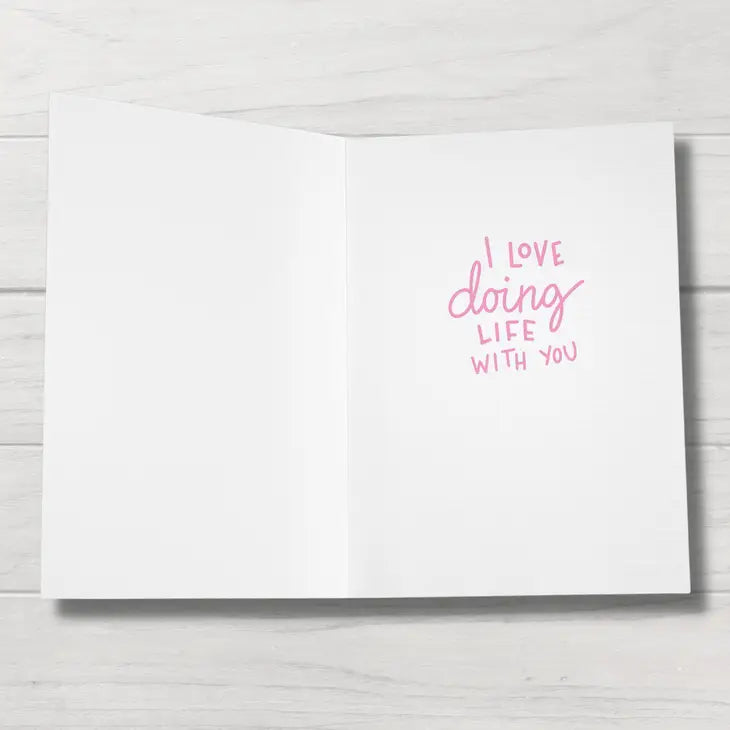 I LOVE
doing
LIFE
WITH YOU